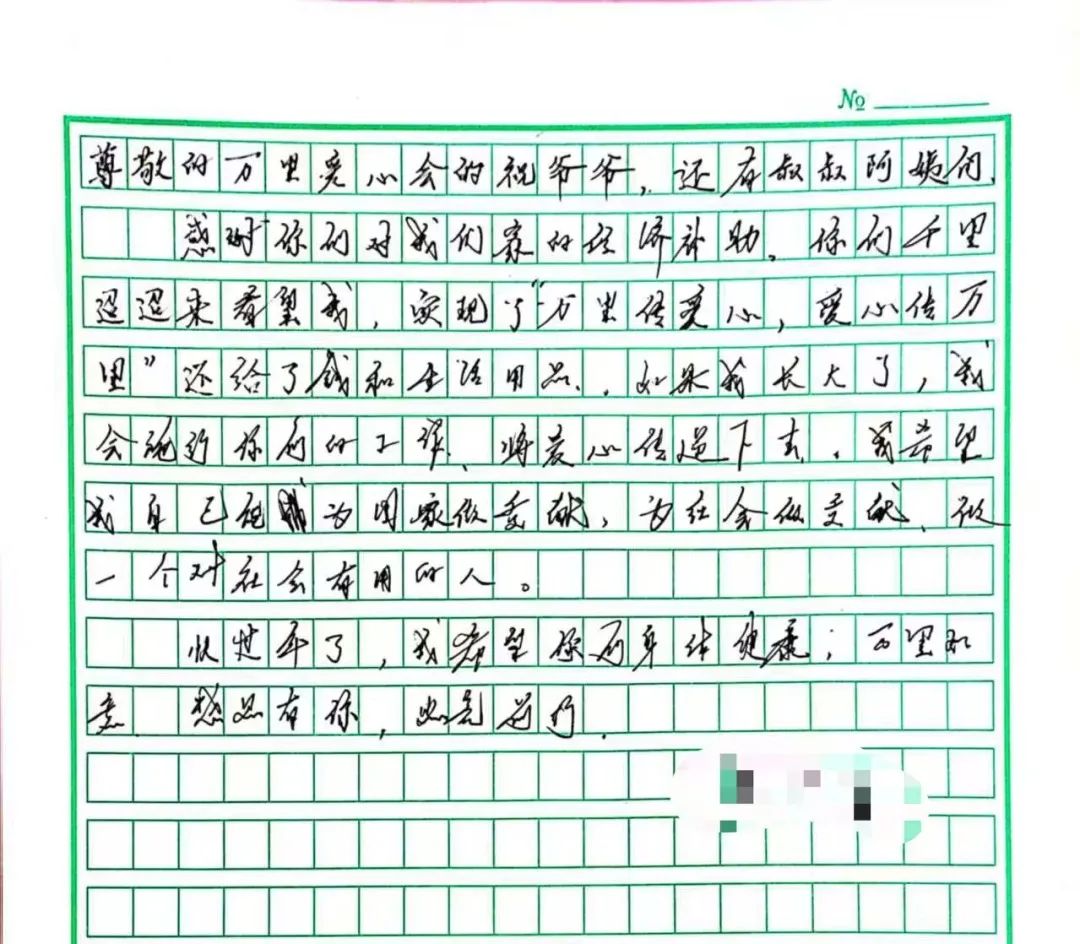 No
尊敬的万里爱心会的祝爷爷，还有叔叔阿姨们、
感谢你们对我们家的经济补助。你们千里
迢迢来看望我，实现了“万里传爱心，爱心传万
里”还给了钱和生活用品.，如果我长大了，我
会施行你们的工作、将爱心传递下去。我希望
我自已能为国家做贡献，为社会做贡献、做
一个对社会有用的人。
快过年了，我希望你们身体健康；万里如
意 感恩有你，必是前行.